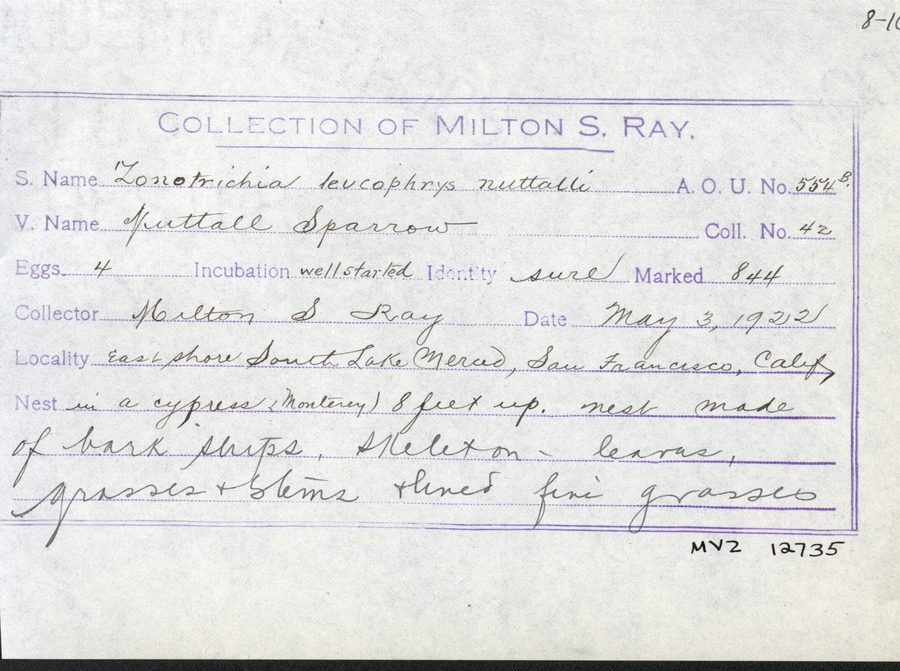 8-10
COLLECTION OF MILTON S. RAY.
S. Name Zonotrichia leucophrys nuttalli A. O. U. No. 554B.
V. Name Nuttall Sparrow Coll. No. 42
Eggs 4 Incubation well started Identity sure Marked 844
Collector Milton S Ray Date May 3, 1922
Locality East shore South Lake Merced, San Francisco, Calif
Nest in a cypress (Monterey) 8 feet up. nest made
of bark strips, skeleton - leaves,
grasses + stems + lined fine grasses
MVZ 12735